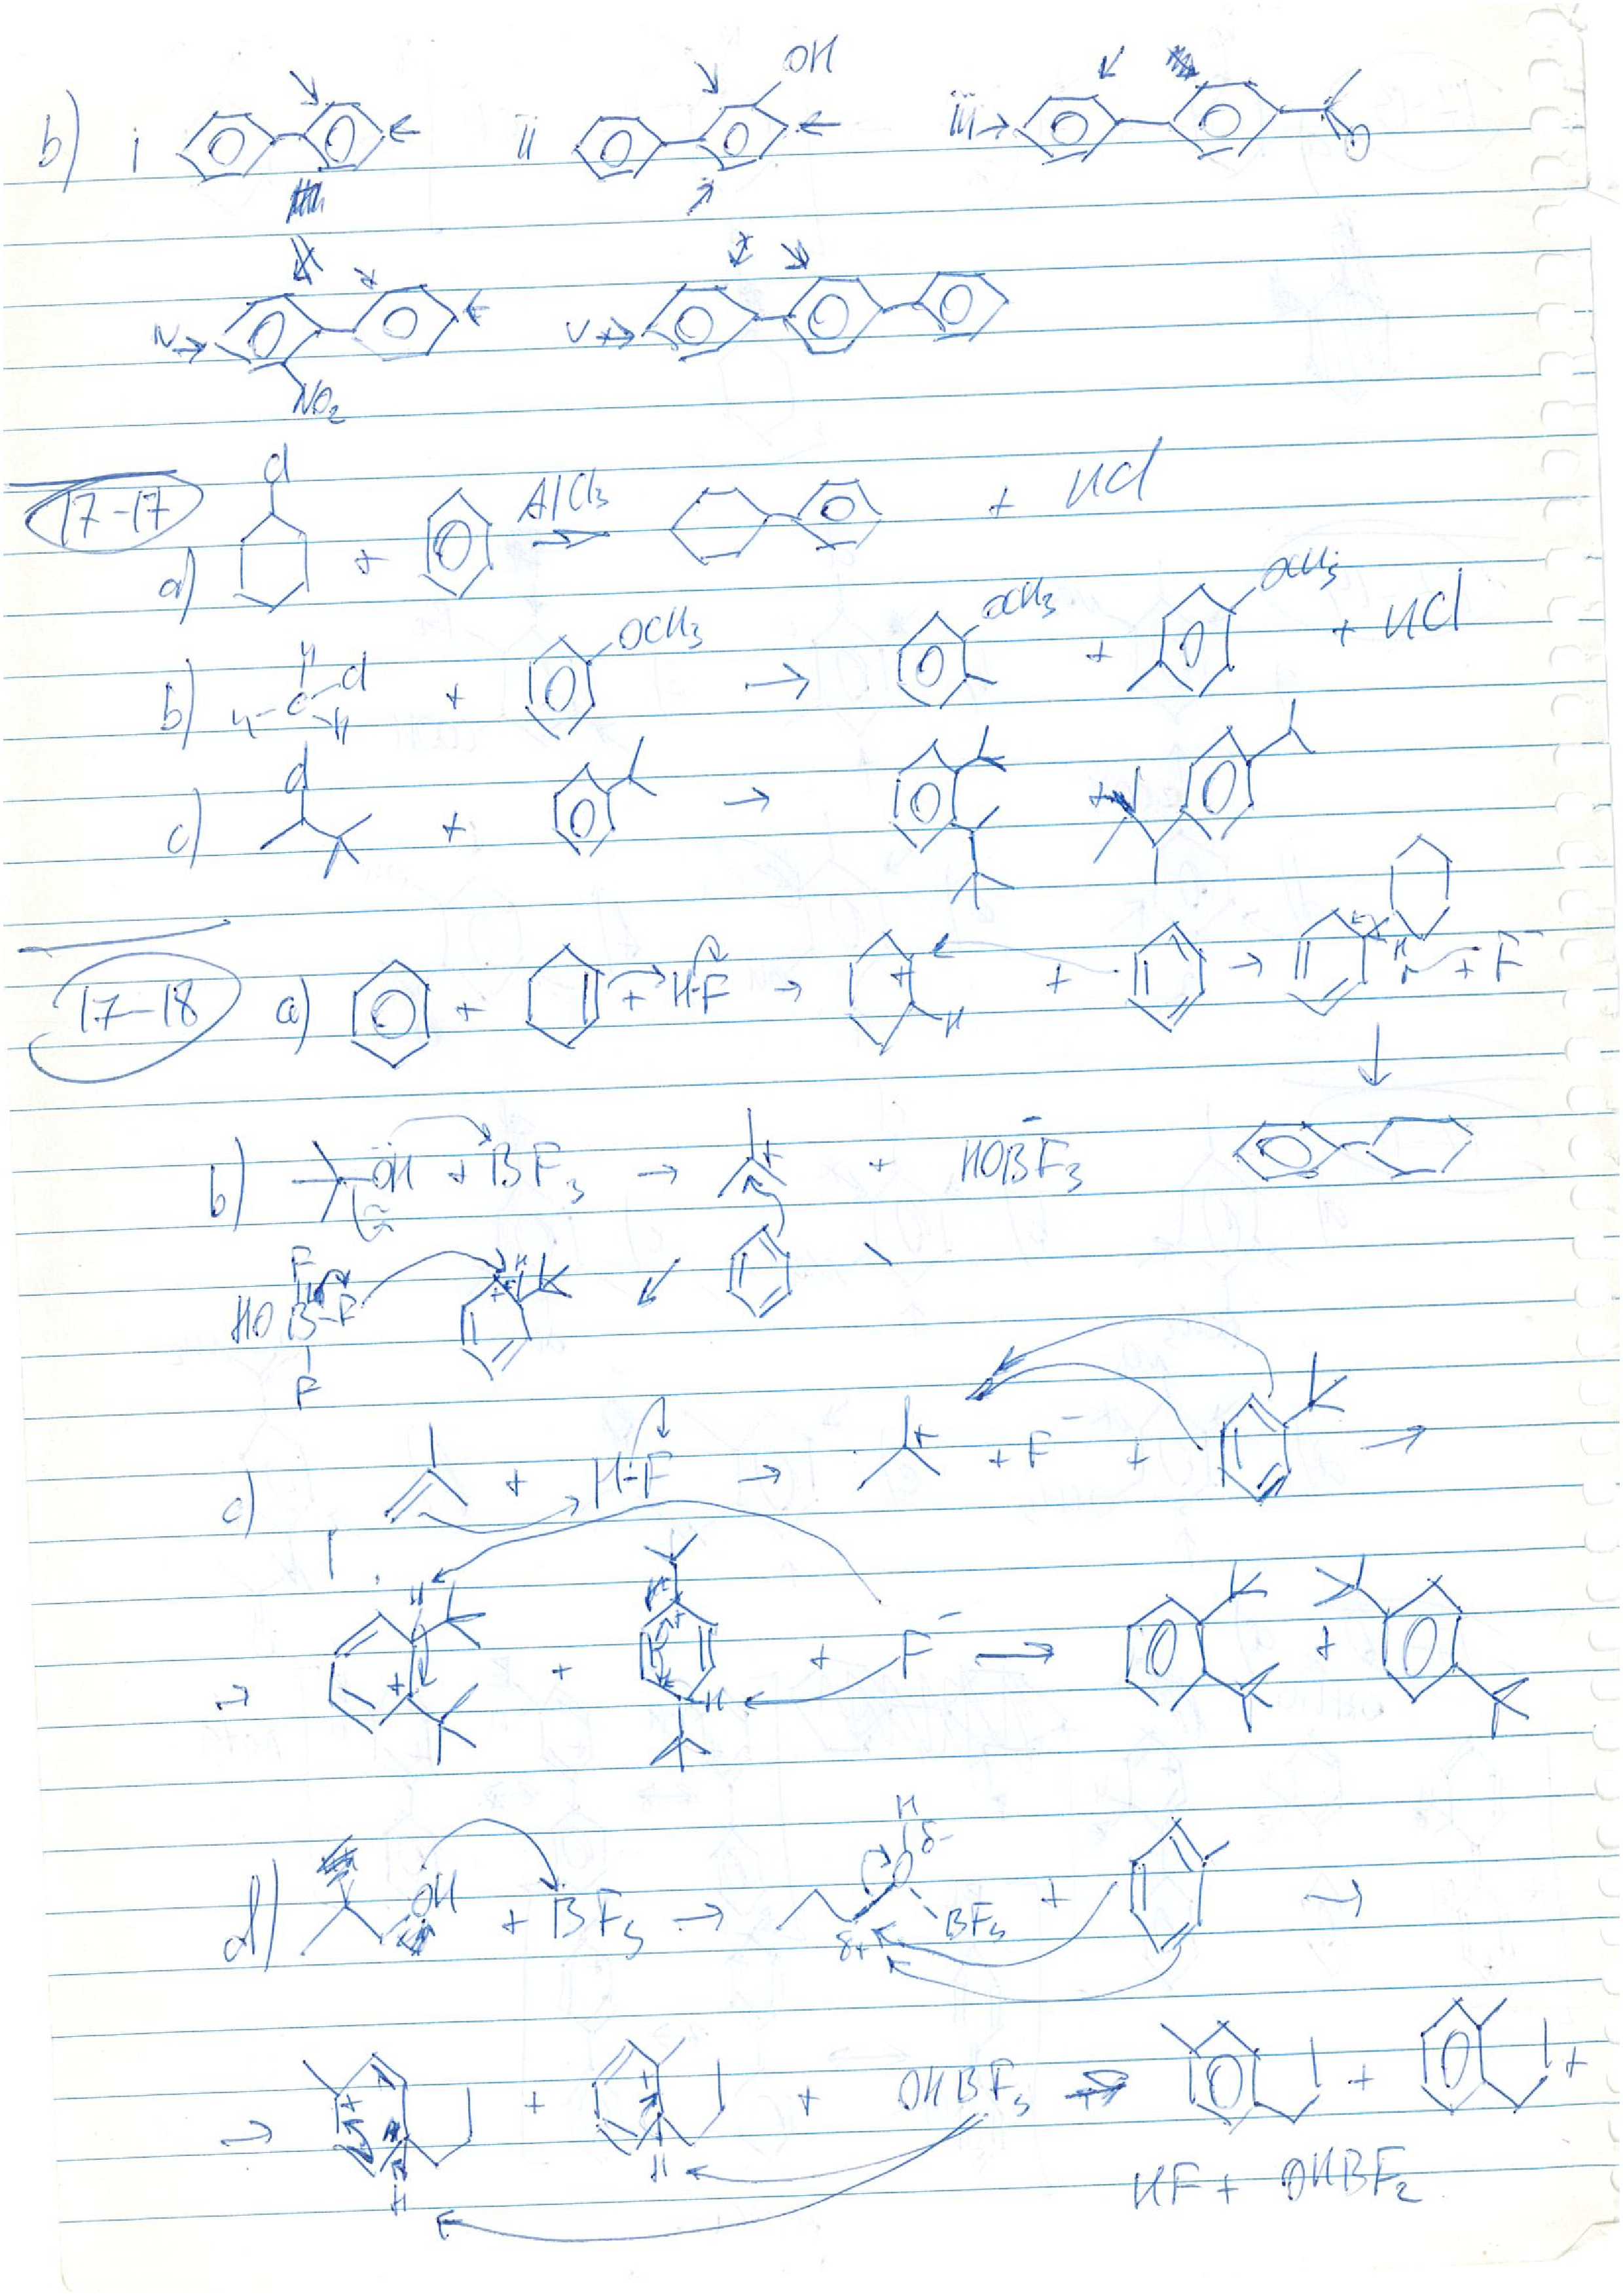 b) i ii OH iii
iv NO2 v
17-17
a) Cl + AlCl3 → + HCl
b) H H-C-Cl H + OCH3 → OCH3 + OCH3 + HCl
c) Cl + → +
17-18 a) + + H-F → + H + → H + F-
b) OH + BF3 → + + HOBF3-
F HO B-F F H +
c) + H-F → + + F- + →
→ H + + H + H + F- → +
d) OH + BF3 → H O δ- δ+ BF3 + →
→ + H + + H + OHBF3 → + +
HF + OHBF2